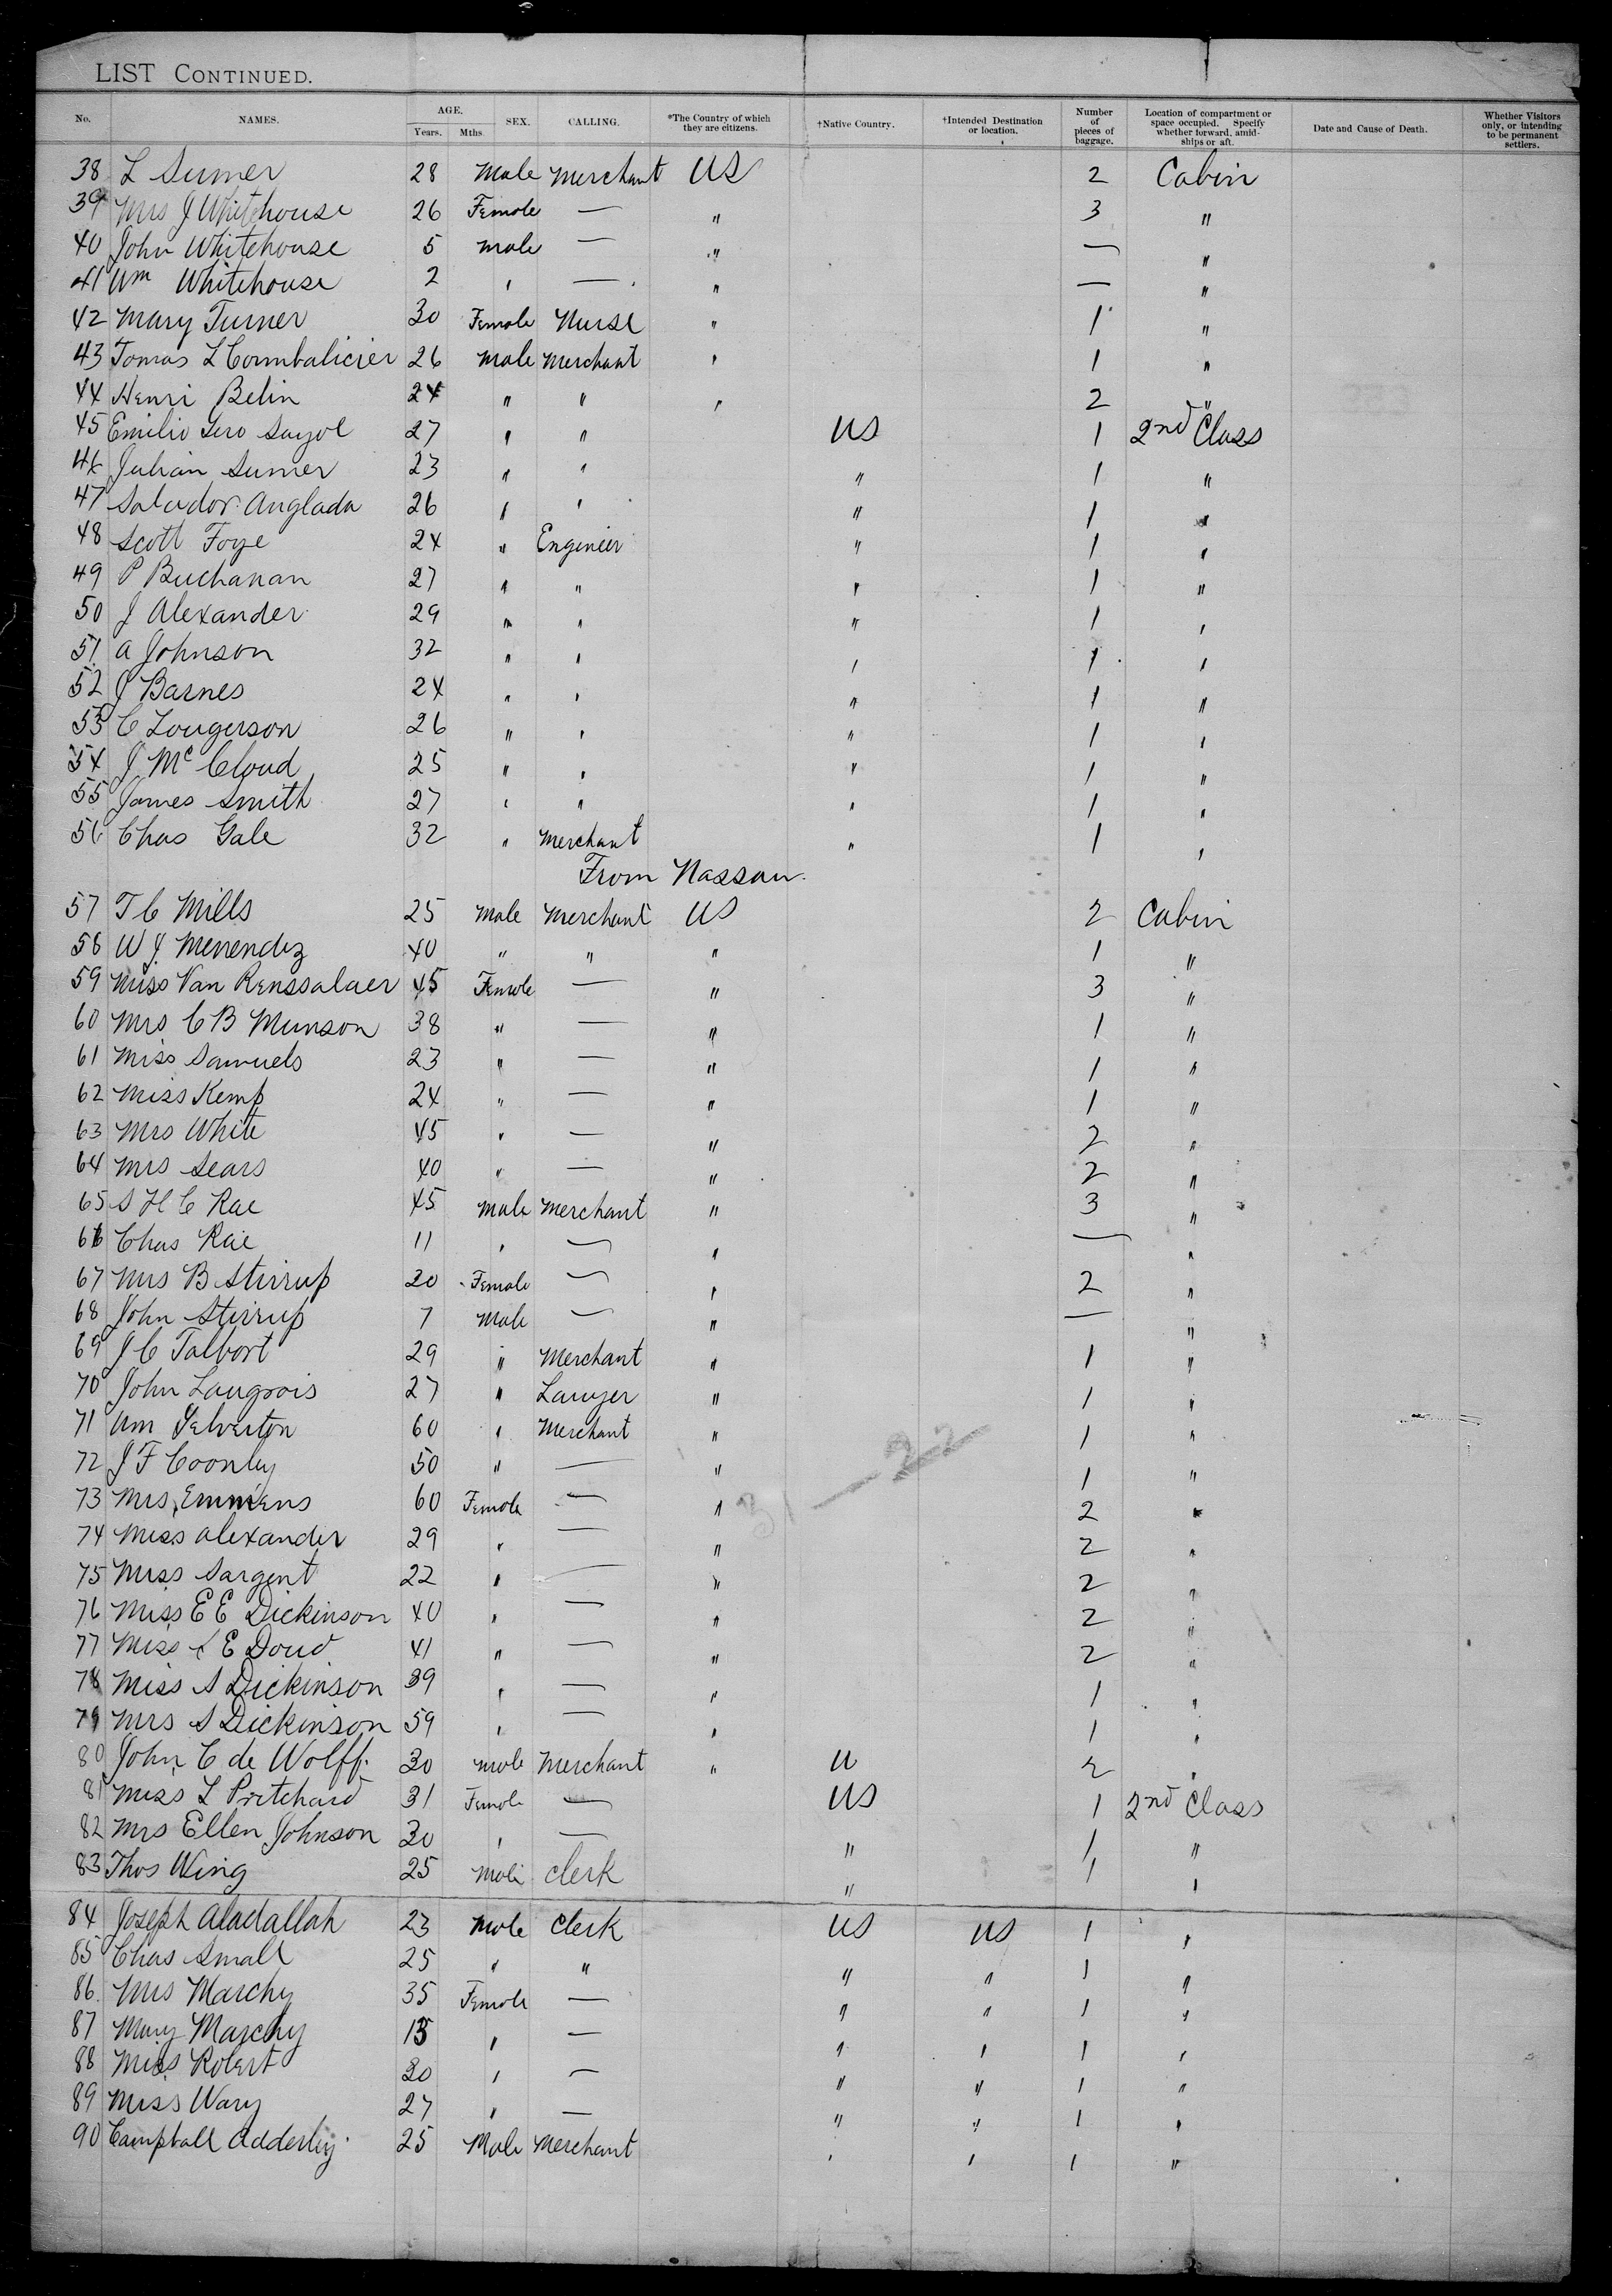 LIST CONTINUED.
No. NAMES. AGE. Years. Mths. SEX. CALLING. *The Country of which they are citizens. †Native Country. †Intended Destination or location. Number of pieces of baggage. Location of compartment or space occupied. Specify whether forward, amidships or aft. Date and Cause of Death. Whether Visitors only, or intending to be permanent settlers.
38 L Sumer 28 Male Merchant US 2 Cabin
39 Mrs J Whitehouse 26 Female — " 3 "
40 John Whitehouse 5 Male — " — "
41 Wm Whitehouse 2 " — " — "
42 Mary Turner 30 Female Nurse " 1 "
43 Tomas L 26 Male Merchant " 1 "
44 Henri Belin 24 " " " 2 "
45 Emilio Sayol 27 " " US 1 2nd Class
46 Julian Sumer 23 " " " 1 "
47 Salvador Anglada 26 " " " 1 "
48 Scott Foye 24 " Engineer " 1 "
49 P Buchanan 27 " " " 1 "
50 J Alexander 29 " " " 1 "
51 A Johnson 32 " " " 1 "
52 J Barnes 24 " " " 1 "
53 C Lougerson 26 " " " 1 "
54 J McCloud 25 " " " 1 "
55 James Smith 27 " " " 1 "
56 Chas Gale 32 " Merchant " 1 "
From Nassau.
57 T C Mills 25 Male Merchant US 2 Cabin
58 W J. Menendez 40 " " " 1 "
59 Miss Van Renssalaer 45 Female — " 3 "
60 Mrs C B Munson 38 " — " 1 "
61 Miss Samuels 23 " — " 1 "
62 Miss Kemp 24 " — " 1 "
63 Mrs White 45 " — " 2 "
64 Mrs Sears 40 " — " 2 "
65 S H C Rae 45 Male Merchant " 3 "
66 Chas Rae 11 " — " — "
67 Mrs B Stirrup 20 Female — " 2 "
68 John Stirrup 7 Male — " — "
69 J C Talbort 29 " Merchant " 1 "
70 John Laugrois 27 " Lawyer " 1 "
71 Wm Yelverton 60 " Merchant " 1 "
72 J F Coonley 50 " — " 1 "
73 Mrs Emmens 60 Female — " 2 "
74 Miss Alexander 29 " — " 2 "
75 Miss Sargent 22 " — " 2 "
76 Miss E E Dickinson 40 " — " 2 "
77 Miss E Doud 41 " — " 2 "
78 Miss S Dickinson 39 " — " 1 "
79 Mrs S Dickinson 59 " — " 1 "
80 John C de Wolff. 30 Male Merchant " U 2 "
81 Miss L Pritchard 31 Female — US 1 2nd Class
82 Mrs Ellen Johnson 30 " — " 1 "
83 Thos Wing 25 Male Clerk " 1 "
84 Joseph Aladallah 23 Male Clerk US US 1 "
85 Chas Small 25 " " " " 1 "
86 Mrs Marchy 35 Female — " " 1 "
87 Mary Marchy 13 " — " " 1 "
88 Miss Robert 20 " — " " 1 "
89 Miss Wary 27 " — " " 1 "
90 Campball Adderley 25 Male Merchant " " 1 "
31 — 22